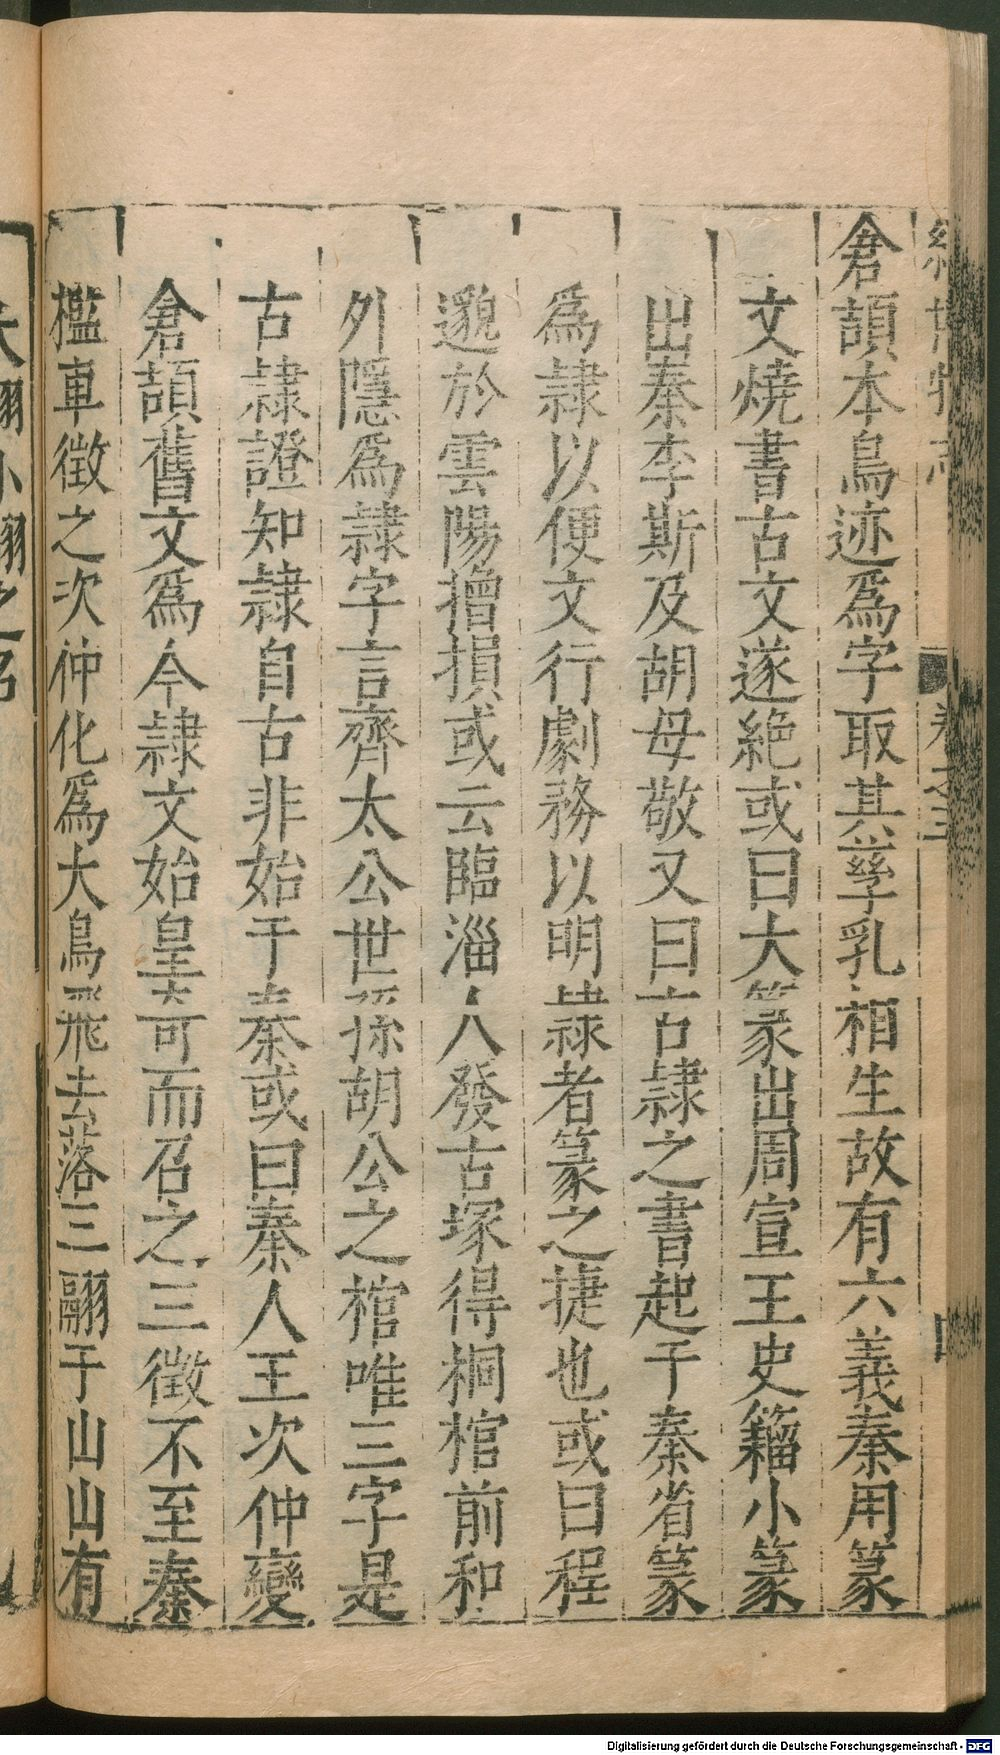 續博物志 卷之三
倉頡本鳥迹爲字取其孳乳相生故有六義秦用篆
文燒書古文遂絶或曰大篆出周宣王史籒小篆
出秦李斯及胡母敬又曰古隸之書起于秦省篆
爲隸以便文行劇務以明隸者篆之捷也或曰程
邈於雲陽增損或云臨淄人發古塚得桐棺前和
外隱爲隸字言齊太公世孫胡公之棺唯三字是
古隸證知隸自古非始于秦或曰秦人王次仲變
倉頡舊文爲今隸文始皇奇而召之三徵不至秦
檻車徵之次仲化爲大鳥飛去落三翮于山山有
大翮小翮之名
Digitalisierung gefördert durch die Deutsche Forschungsgemeinschaft - DFG